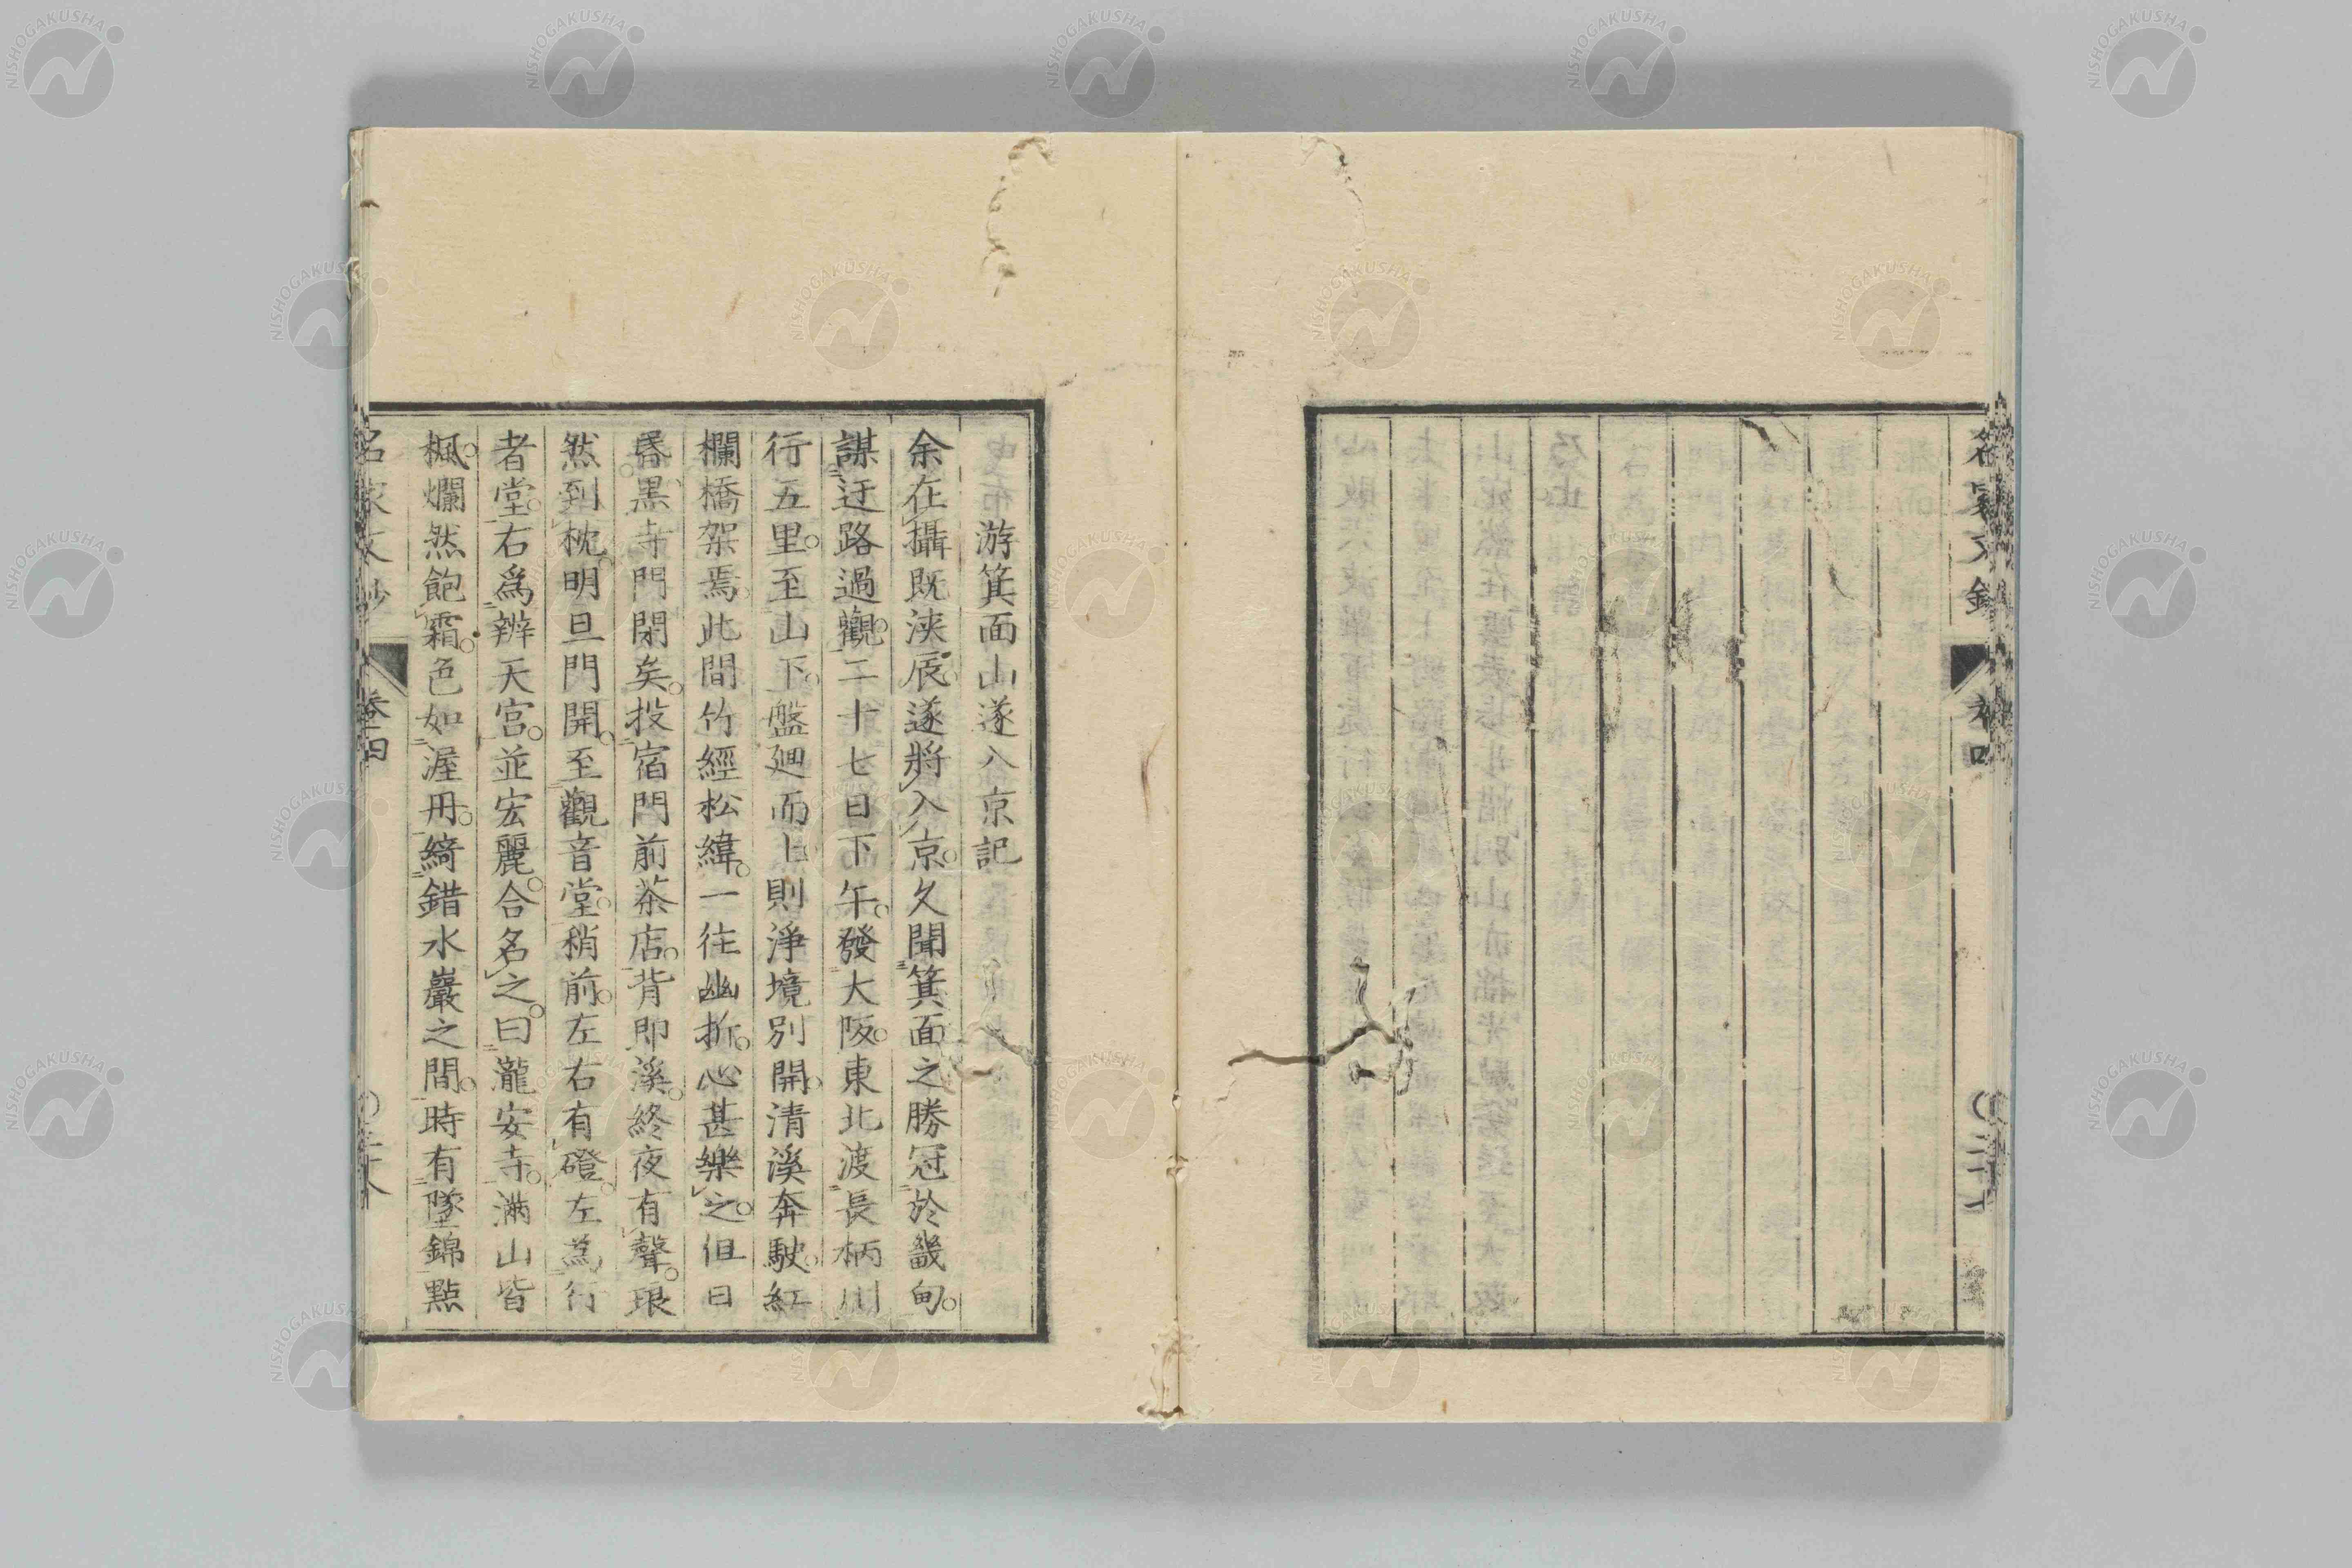 游箕面山遂入京記
余在攝既浹辰遂將入京久聞箕面之勝冠於畿甸
謀迂路過觀二十七日下午發大阪東北渡長柄川
行五里至山下盤廻而上則淨境別開清溪奔駛紅
欄橋架焉此間竹經松緯一往幽折心甚樂之但日
昏黑寺門閉矣投宿門前茶店背即溪終夜有聲琅
然到枕明旦門開至觀音堂稍前左右有磴左爲行
者堂右爲辨天宮並宏麗合名之曰瀧安寺滿山皆
楓爛然飽霜色如渥丹綺錯水巖之間時有墜錦點